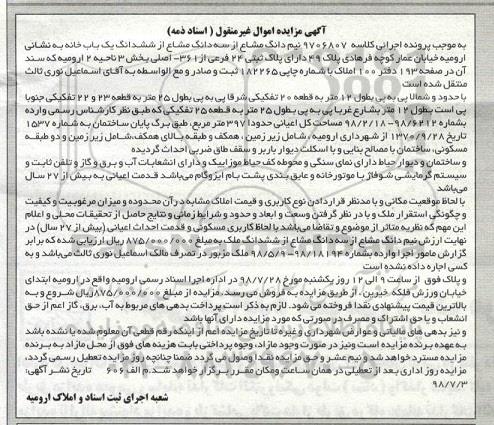 آگهی مزایده اموال غیرمنقول ( اسناد ذمه)
به موجب پرونده اجرائی کلاسه ۹۷۰۶۸۰۷ نیم دانگ مشاع از سه دانگ مشاع از ششدانگ یک باب خانه به نشانی
ارومیه خیابان عمار کوچه فرهادی پلاک ۴۹ دارای پلاک ثبتی ۲۴ فرعی از ۳۶۱- اصلی بخش ۳ ناحیه ۲ ارومیه که سند
آن در صفحه ۱۹۳ دفتر ۱۰۰ املاک با شماره چاپی ۱۸۲۲۶۵ ثبت و صادر و مع الواسطه به آقای اسماعیل نوری ثالث
منتقل شده است
با حدود و شمالا پی به پی بطول ۱۲ متر به قطعه ۲۰ تفکیکی شرقا پی به پی بطول ۲۵ متر به قطعه ۲۳ و ۲۲ تفکیکی جنوبا
پی است بطول ۱۲ متر بشارع غربا پی به پی بطول ۲۵ متر به قطعه ۲۵ تفکیکی که طبق نظر کارشناس رسمی وارده
بشماره ۹۸۶۲۱۲-۹۸/۲/۱۸ مساحت کل اعیانی حدودا ۳۹۷ متر مربع، طبق برگ پایان ساختمان به شماره ۱۵۳۷
تاریخ ۱۳۷۰/۹/۲۸ از شهرداری ارومیه، شامل زیر زمین، همکف و طبقه بالای همکف،شامل زیر زمین و دو طبقه
مسکونی، ساختمان با مصالح بنایی و با اسکلت دیوار باربر و سقف طاق ضربی احداث گردیده
و ساختمان و دیوار حیاط دارای نمای سنگی و محوطه کف حیاط موزاییک و دارای انشعابات آب و برق و گاز و تلفن ثابت و
سیستم گرمایشی شوفاژ با موتورخانه و عایق بندی پشت بام ایزوگام می‌باشد قدمت اعیانی به بیش از ۲۷ سال
می‌باشد
با لحاظ موقعیت مکانی و با مدنظر قراردادن نوع کاربری و قیمت املاک مشابه در آن محدوده و میزان مرغوبیت و کیفیت
و چگونگی استقرار ملک و با در نظر گرفتن وسعت و ابعاد و حدود و شرایط زمانی و نتایج حاصل از تحقیقات محلی و اعلام
این مهم که نظریه متاثر از موضوع و تقاضا می‌باشد با لحاظ کاربری مسکونی و قدمت احداث اعیانی (بیش از ۲۷ سال) در
نهایت ارزش نیم دانگ مشاع از سه دانگ مشاع از ششدانگ ملک به مبلغ ۸۷۵/۰۰۰/۰۰۰ ریال ارزیابی شده که برابر
گزارش مامور اجرا وارده بشماره ۹۸۱۸۱۹۴-۹۸/۵/۹ ملک مزبور در تصرف مالک اسماعیل نوری ثالث می‌باشد و به
کسی اجاره داده نشده است
و پلاک فوق از ساعت ۹ الی ۱۲ روز یکشنبه مورخ ۹۸/۷/۲۸ در اداره اجرا اسناد رسمی ارومیه واقع در ارومیه ابتدای
خیابان ورزش فلکه خیرین . از طریق مزایده به فروش می رسد. مزایده از مبلغ ۸۷۵/۰۰۰/۰۰۰ ریال شروع و به
بالاترین قیمت پیشنهادی نقدا فروخته می شود. لازم به ذکر است پرداخت بدهی های مربوط به آب، برق، گاز اعم از حق
انشعاب و یا حق اشتراک و مصرف در صورتی که مورد مزایده دارای آنها باشد
و نیز بدهی های مالیاتی و عوارض شهرداری و غیره تا تاریخ مزایده اعم از اینکه رقم قطعی آن معلوم شده یا نشده باشد
به عهده برنده مزایده است ونیز در صورت وجود مازاد، وجوه پرداختی بابت هزینه های فوق از محل مازاد به برنده
مزایده مسترد خواهد شد و نیم عشر و حق مزایده نقدا وصول می گردد ضمنا چنانچه روز مزایده تعطیل رسمی گردد،
مزایده روز اداری بعد از تعطیلی در همان ساعت ومکان مقرر برگزار خواهد شد.م الف ۶۰۶ تاریخ نشر آگهی:
۹۸/۷/۳
شعبه اجرای ثبت اسناد و املاک ارومیه